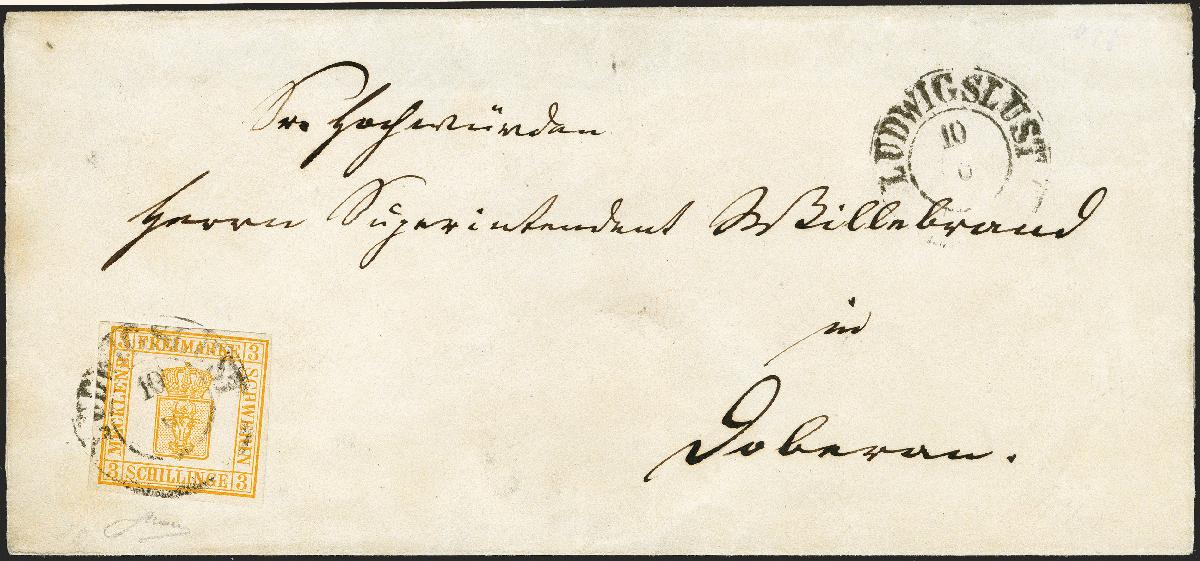 LUDWIGSLUST
10
Sr. Hochwürden
Herrn Superintendent Willebrand
in
Doberan.
3 FREIMARKE 3
MECKLENB.
SCHWERIN
3 SCHILLINGE 3
10